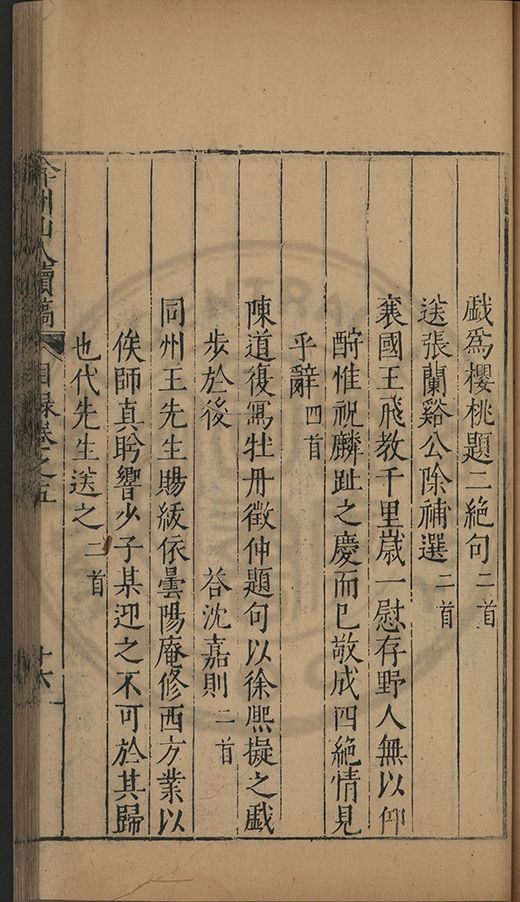 戱爲櫻桃題二絶句二首
送張蘭谿公除補選二首
襄國王飛教千里嵗一慰存野人無以仰
酧惟祝麟趾之慶而巳敬成四絶情見
乎辭四首
陳道復寫牡丹徵仲題句以徐熙擬之戱
步於後 答沈嘉則二首
同州王先生賜紱依曇陽庵修西方業以
俟師真肹響少子某迎之不可於其歸
也代先生送之二首
弇州山人續稿 目録卷之五 十六